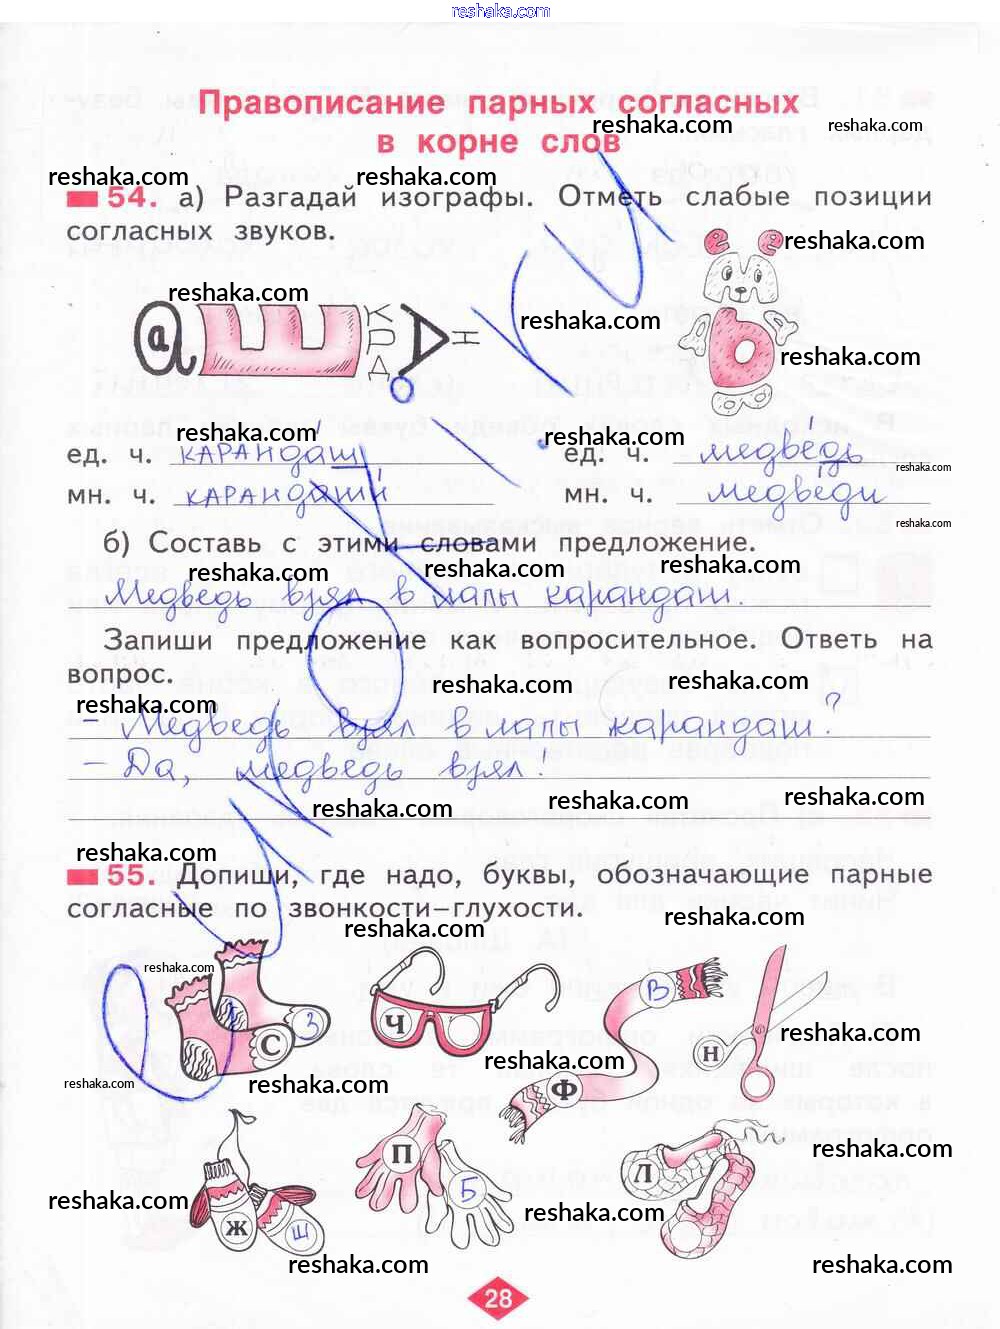 reshaka.com
Правописание парных согласных
в корне слов
reshaka.com reshaka.com
reshaka.com reshaka.com
54. а) Разгадай изографы. Отметь слабые позиции
согласных звуков.
reshaka.com
reshaka.com
reshaka.com
reshaka.com
reshaka.com reshaka.com
ед. ч. карандаш ед. ч. медведь
reshaka.com
мн. ч. карандаши мн. ч. медведи
reshaka.com
б) Составь с этими словами предложение.
reshaka.com reshaka.com reshaka.com
Медведь взял в лапы карандаш.
Запиши предложение как вопросительное. Ответь на
вопрос.
reshaka.com reshaka.com reshaka.com
– Медведь взял в лапы карандаш?
– Да, медведь взял!
reshaka.com reshaka.com reshaka.com
reshaka.com
55. Допиши, где надо, буквы, обозначающие парные
согласные по звонкости–глухости.
reshaka.com reshaka.com
reshaka.com
С З Ч В Ф Н
reshaka.com
reshaka.com reshaka.com reshaka.com
Ж Ш П Б Л
reshaka.com
reshaka.com reshaka.com
reshaka.com reshaka.com
28